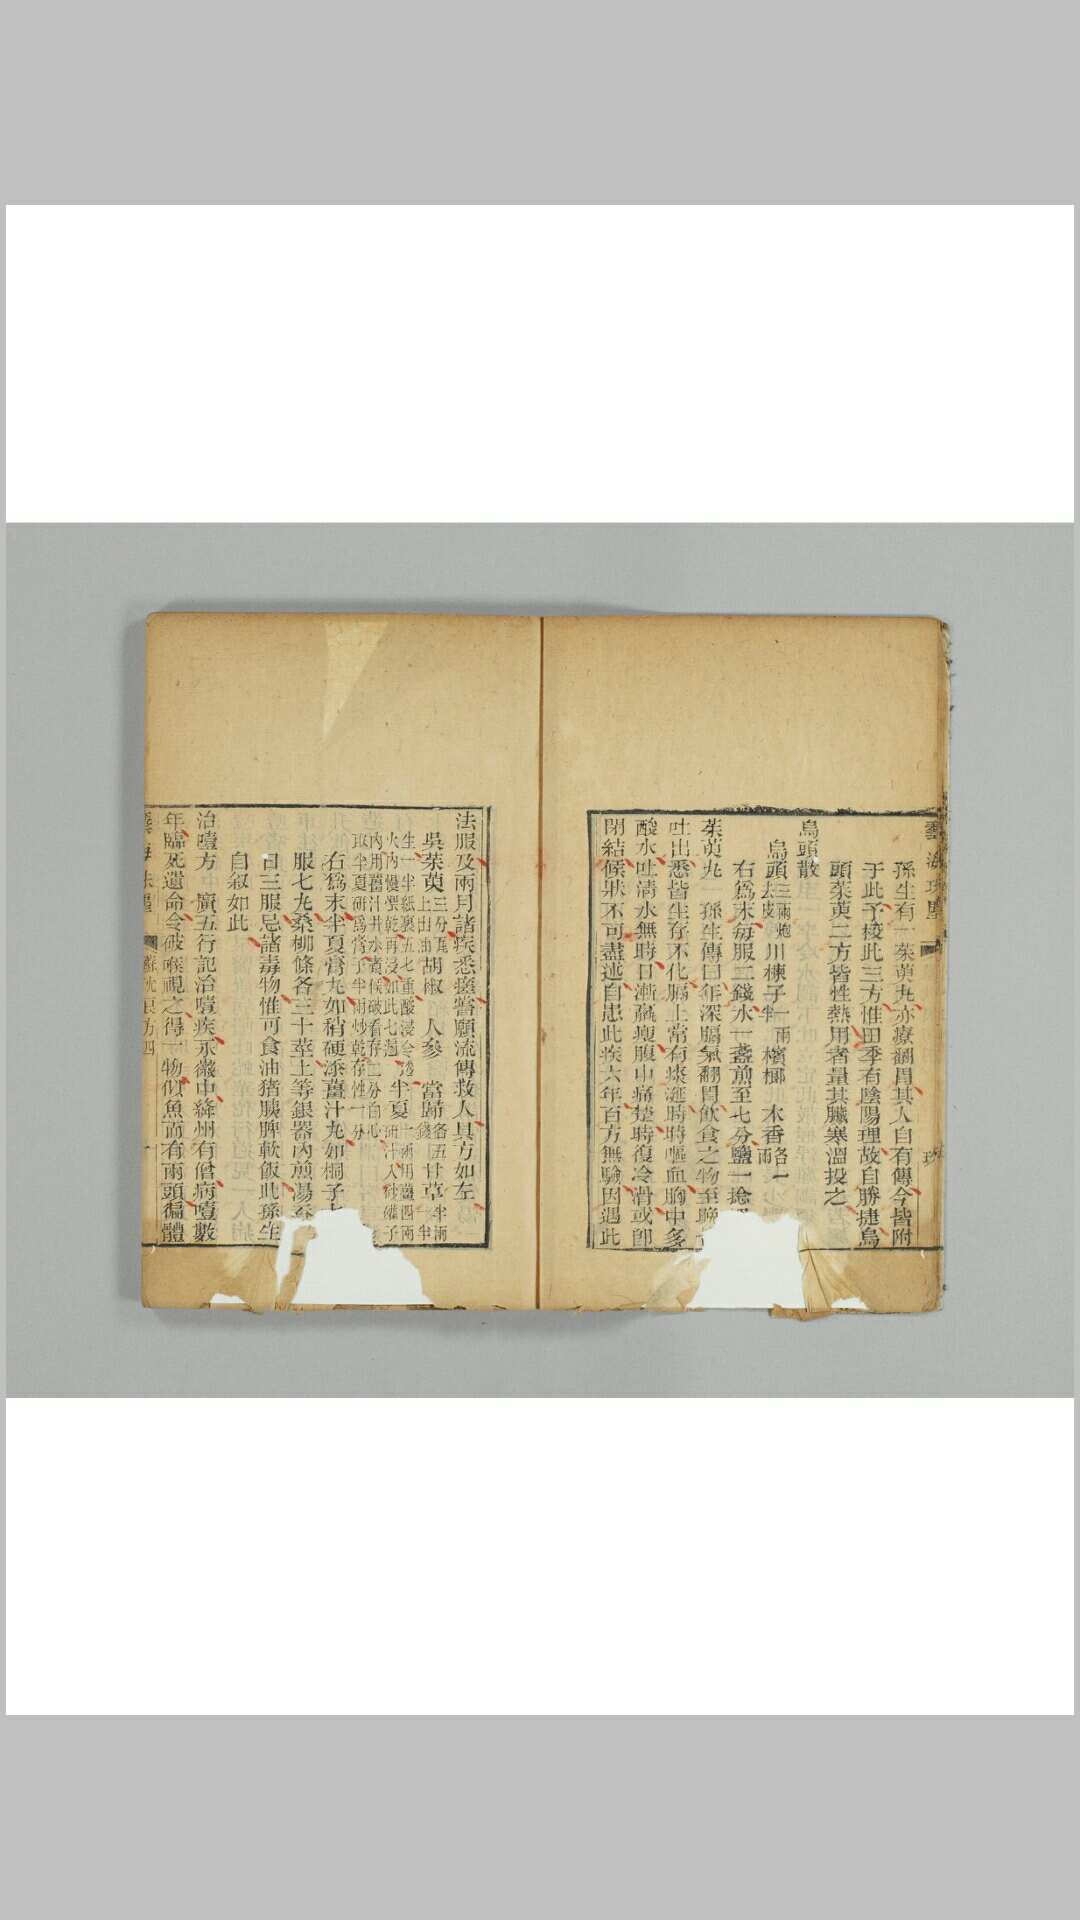 孫生有一茱萸丸亦療翻胃其人自有傳今皆附
于此予按此三方惟田季有陰陽理故自勝捷烏
頭茱萸二方皆性熱用者量其臟寒溫投之
烏頭散
烏頭三兩炮去皮 川楝子一兩半 檳榔 木香各一兩
右為末每服二錢水一盞煎至七分鹽一捻
茱萸丸 孫生傳曰年深膈氣翻胃飲食之物至晚
吐出悉皆生存不化膈上常有痰涎時時嘔血胸中多
酸水吐清水無時日漸羸瘦腹中痛楚時復冷滑或即
閉結候狀不可盡述自患此疾六年百方無驗因遇此
法服及兩月諸疾悉瘥嘗願流傳救人具方如左
吳茱萸三分 胡椒 人參 當歸各五錢 甘草半兩
生一半紙裹五七重酸浸令透 半夏
火內慢煨乾再浸如此七遍
內用薑汁井水
取半夏研為膏子半兩炒乾存性一分
右為末半夏膏丸如稍硬添薑汁丸如桐子
服七丸桑柳條各三十莖上等銀器內煎湯吞
日三服忌諸毒物惟可食油猪胰脾軟飯此孫生
自叙如此
治噎方 廣五行記治噎疾永徽中絳州有僧病噎數
年臨死遺命令破喉視之得一物似魚而有兩頭徧體
藝海珠塵 蘇沈良方四